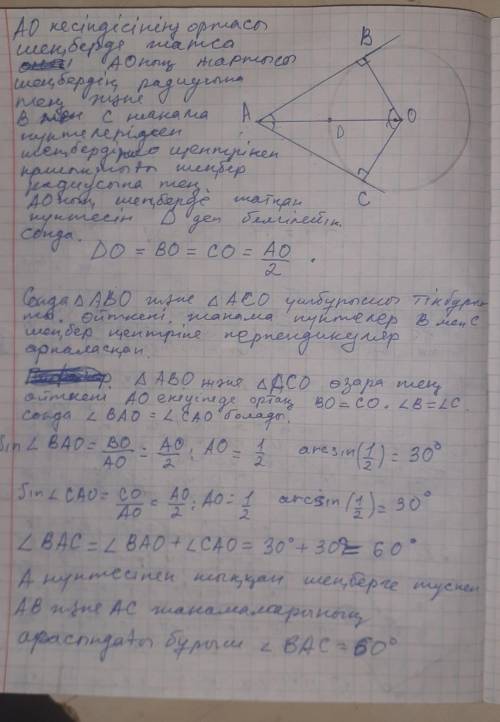 АО кесіндісінің ортасы
шеңберде жатса
АОның жартысы
шеңбердің радиусына
тең және
В мен С жанама
нүктелерінен
шеңбердің центрінен
қашықтығы шеңбер
радиусына тең.
АОның шеңберде жатқан
нүктесін D деп белгілейік.
Сонда.
DO = BO = CO = AO/2.
A
B
C
D
O
Сонда △ABO және △ACO үшбұрышы тікбұрыш
ты. Өйткені жанама нүктелер В мен С
шеңбер центріне перпендикуляр
орналасқан.
△ABO және △ACO өзара тең
өйткені АО екеуінде ортақ BO=CO. ∠B=∠C.
сонда ∠BAO = ∠CAO болады.
Sin∠BAO = BO/AO = AO/2 : AO = 1/2 arcsin(1/2) = 30°
Sin∠CAO = CO/AO = AO/2 : AO = 1/2 arcsin(1/2) = 30°
∠BAC = ∠BAO + ∠CAO = 30° + 30° = 60°
А нүктесінен шыққан шеңберге түскен
АВ және АС жанамаларының
арасындағы бұрыш ∠BAC = 60°